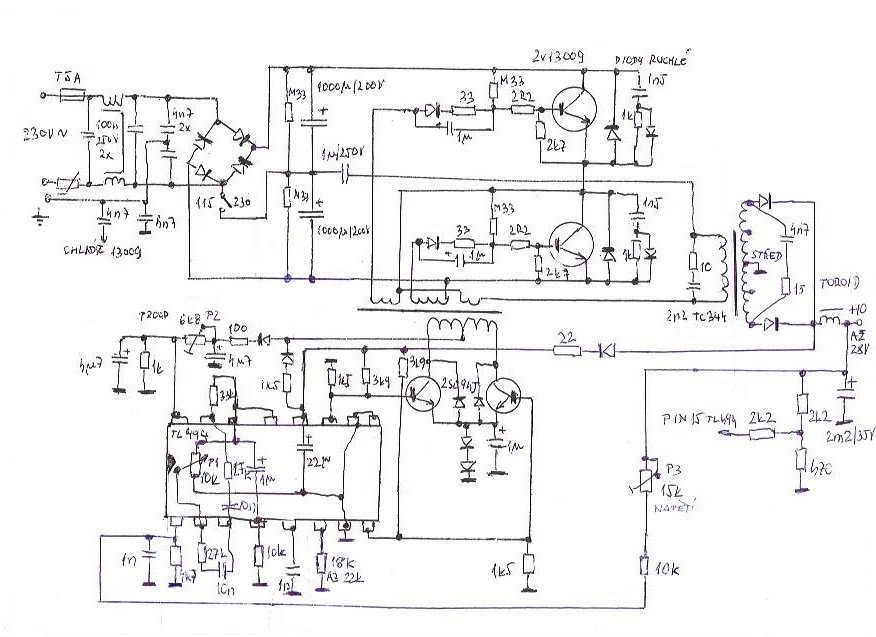 T5A
230V~
100n
250V
2x
4n7
2x
M33
1000µ/200V
1µ/250V
M33
1000µ/200V
115 230
4n7
4n7
CHLADIČ 13009
2x13009
DIODY RUCHLÉ
33
1µ
M33
2R2
2k7
1n5
1k
33
1µ
M33
2R2
2k7
1n5
1k
10
2n2 TC344
STŘED
4n7
15
TOROID
+10
AŽ
28V
P2
6k8
100
4µ7
1k
4µ7
1k5
1k5
3k9
3k9
22
1µ
33k
TL494
P1
10k
27k
1µ
22µ
1n
4k7
27k
10n
10k
1n
18k
AŽ 22k
1k5
PIN 15 TL494
2k2
2k2
470
2m2/35V
P3
15k
NAPĚTÍ
10k